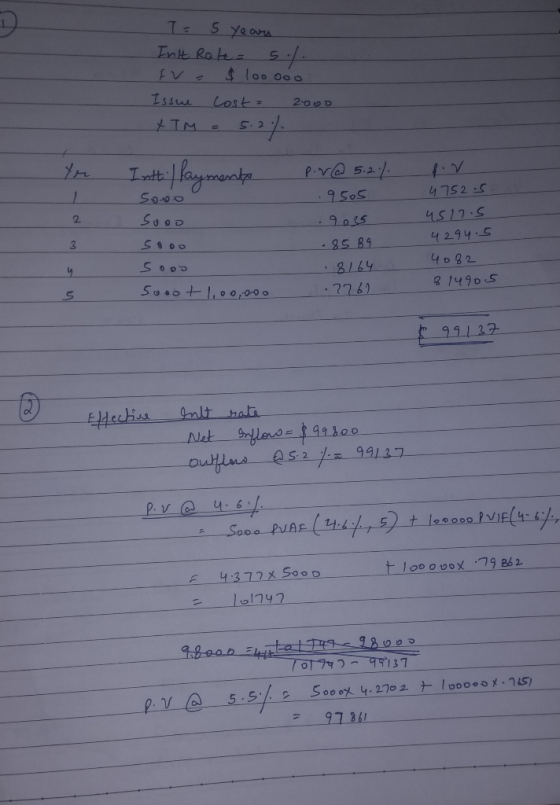 1
T = 5 years
Intt Rate = 5 %.
FV = $ 100 000
Issue Cost = 2000
YTM = 5.2 %.
Yr Intt./Payments P.V @ 5.2 % P.V
1 5000 .9505 4752.5
2 5000 .9035 4517.5
3 5000 .8589 4294.5
4 5000 .8164 4082
5 5000 + 1,00,000 .7761 81490.5
$ 99137
2 Effective Intt rate
Net Inflow = $ 99800
Outflow @ 5.2 % = 99137
P.V @ 4.6 %.
= 5000 PVAF (4.6 %, 5) + 100000 PVIF (4.6 %,
= 4.377 x 5000 + 100000 x .79862
= 101747
98000 = 101747 - 98000
101747 - 99137
P.V @ 5.5 % = 5000 x 4.2702 + 100000 x .7651
= 97861